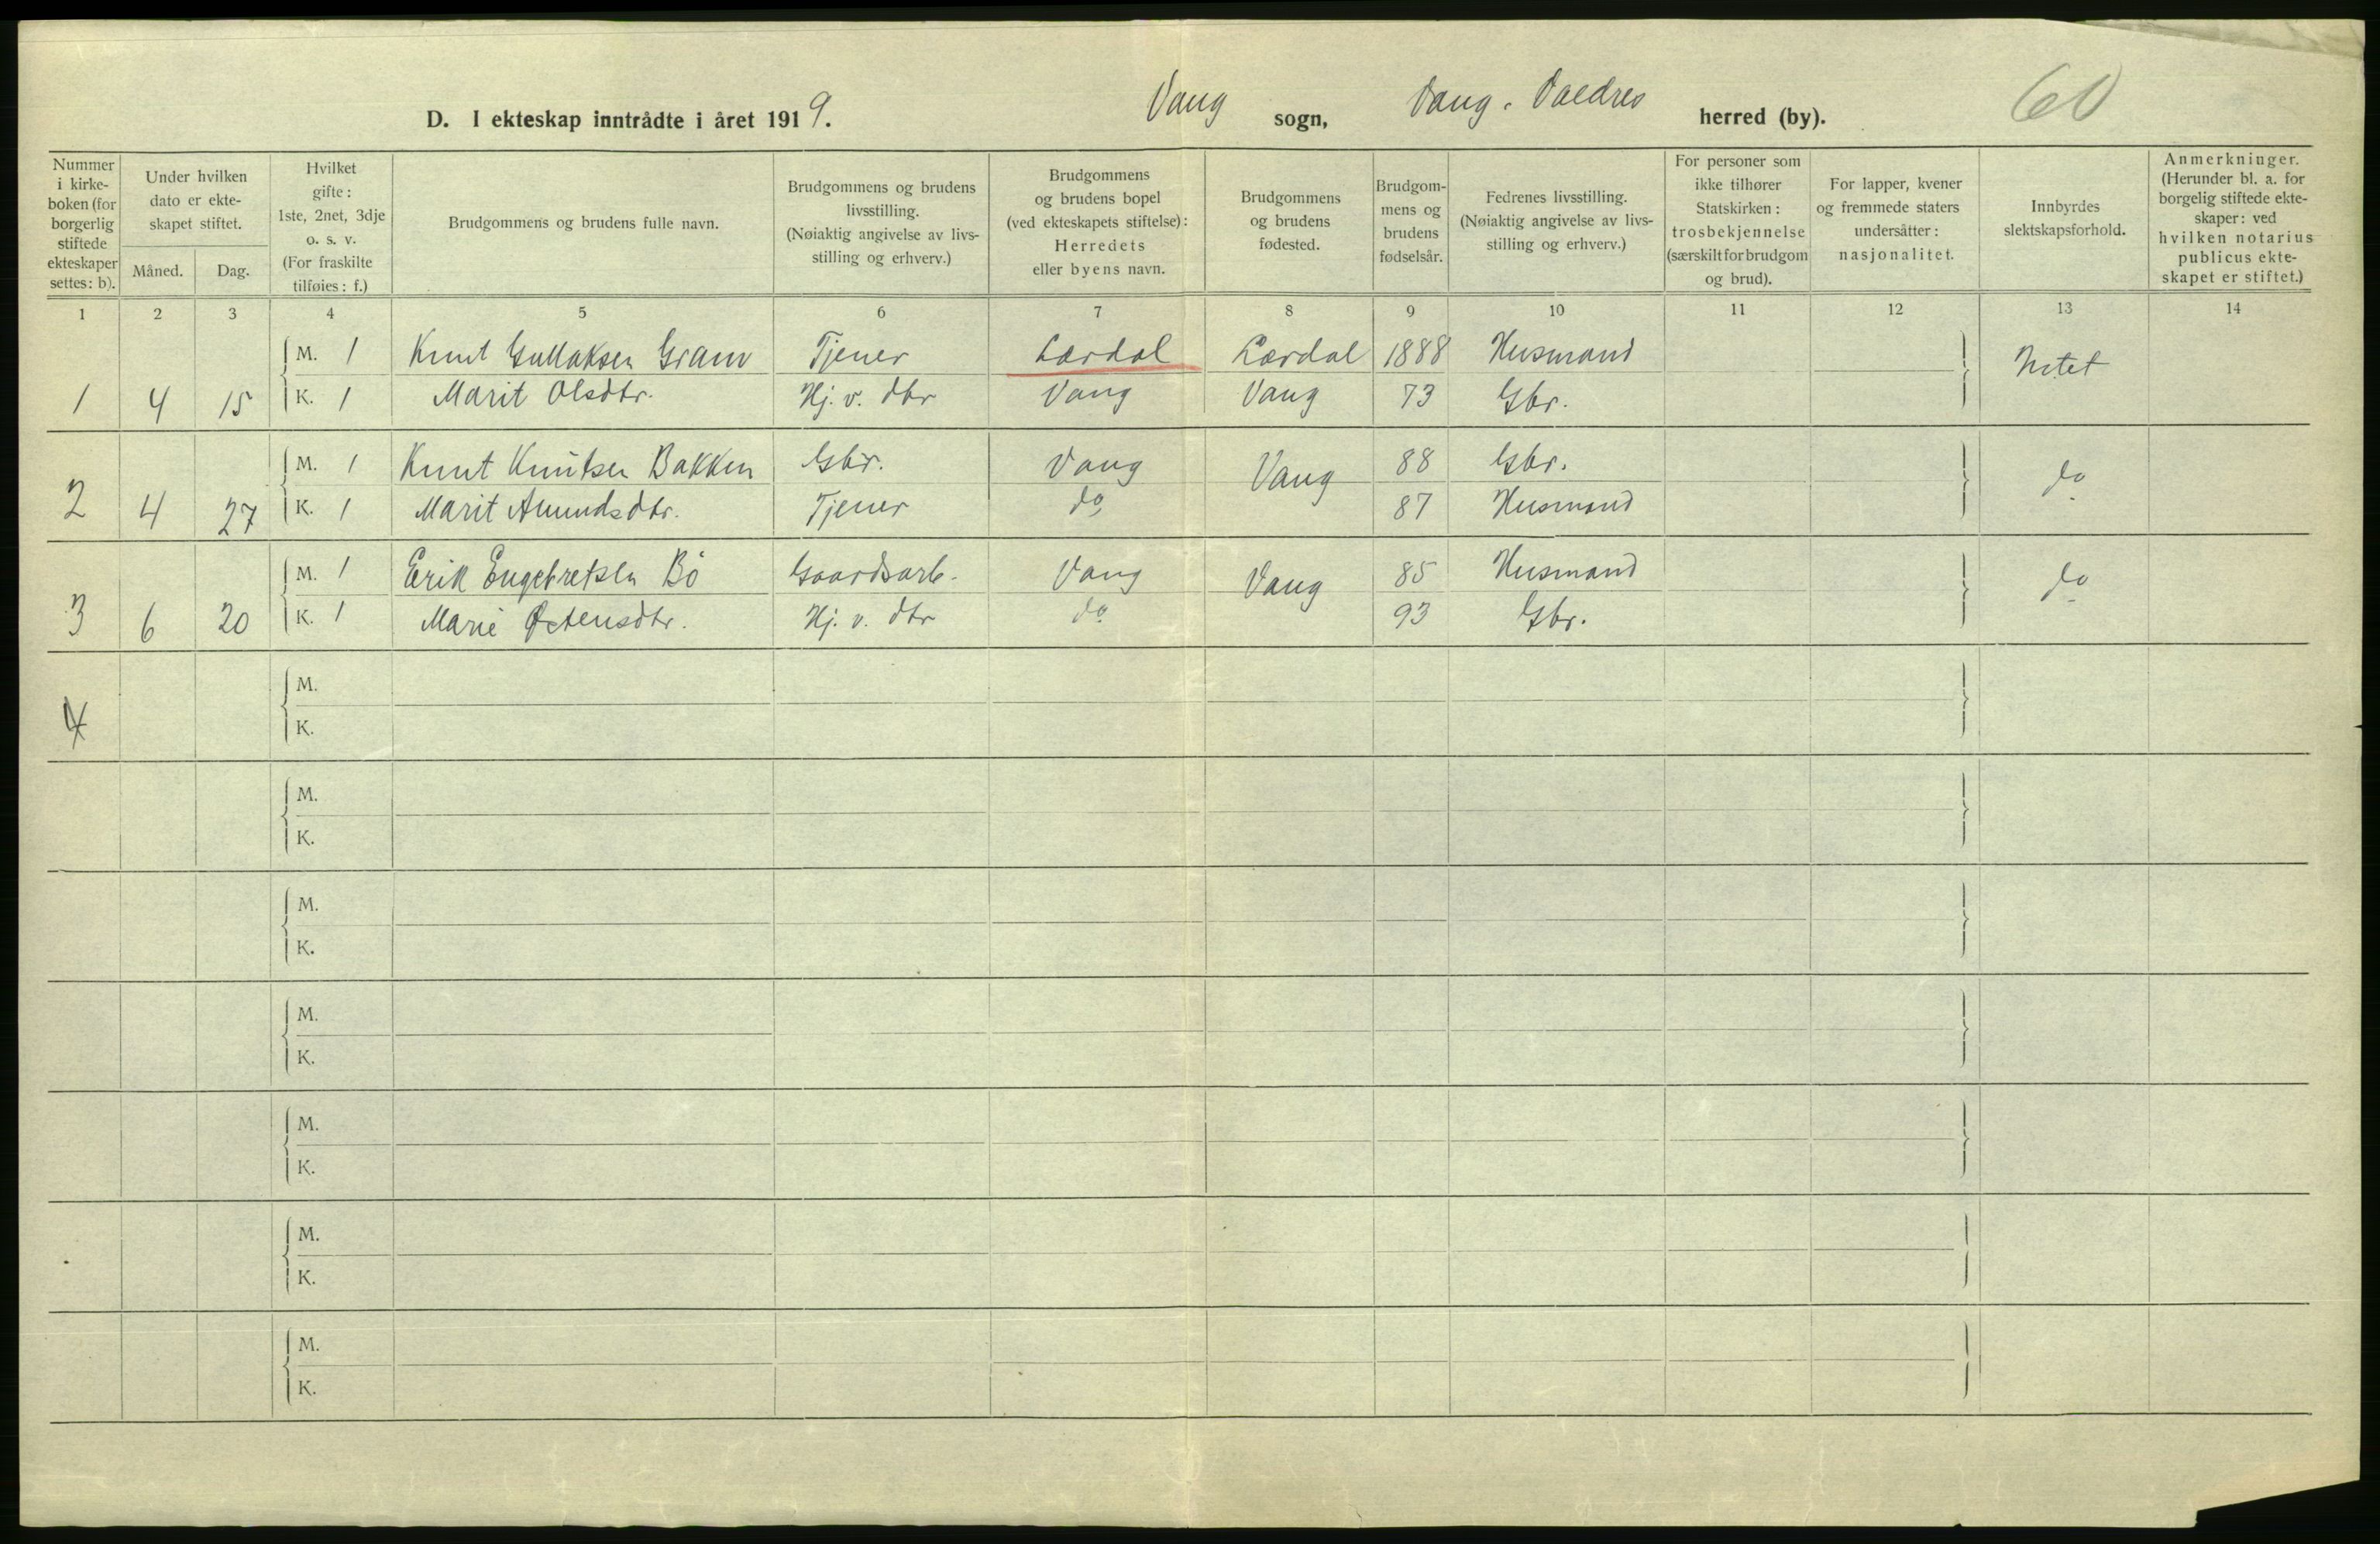 D. I ekteskap inntrådte i året 1919. Vang sogn, Vang, Valdres herred (by). 60
Nummer i kirkeboken (for borgerlig stiftede ekteskaper settes: b).
Under hvilken dato er ekteskapet stiftet.
Måned. Dag.
Hvilket gifte: 1ste, 2net, 3dje o. s. v. (For fraskilte tilføies: f.)
Brudgommens og brudens fulle navn.
Brudgommens og brudens livsstilling. (Nøiaktig angivelse av livsstilling og erhverv.)
Brudgommens og brudens bopel (ved ekteskapets stiftelse): Herredets eller byens navn.
Brudgommens og brudens fødested.
Brudgommens og brudens fødselsår.
Fedrenes livsstilling. (Nøiaktig angivelse av livsstilling og erhverv.)
For personer som ikke tilhører Statskirken: trosbekjennelse (særskilt for brudgom og brud).
For lapper, kvener og fremmede staters undersåtter: nasjonalitet.
Innbyrdes slektskapsforhold.
Anmerkninger. (Herunder bl. a. for borgelig stiftede ekteskaper: ved hvilken notarius publicus ekteskapet er stiftet.)
1 2 3 4 5 6 7 8 9 10 11 12 13 14
M. 1 Knut Gullaksen Gram Tjener Lærdal Lærdal 1888 Husmand Intet
1 4 15 K. 1 Marit Olsdtr. Hj. v. dtr Vang Vang 73 Gbr.
M. 1 Knut Knutsen Bakken Gbr. Vang Vang 88 Gbr. do
2 4 27 K. 1 Marit Amundsdtr. Tjener do 87 Husmand
M. 1 Erik Engebretsen Bö Gaardsarb. Vang Vang 85 Husmand do
3 6 20 K. 1 Marie Østensdtr. Hj. v. dtr do 93 Gbr.
M.
4 K.
M.
K.
M.
K.
M.
K.
M.
K.
M.
K.
M.
K.